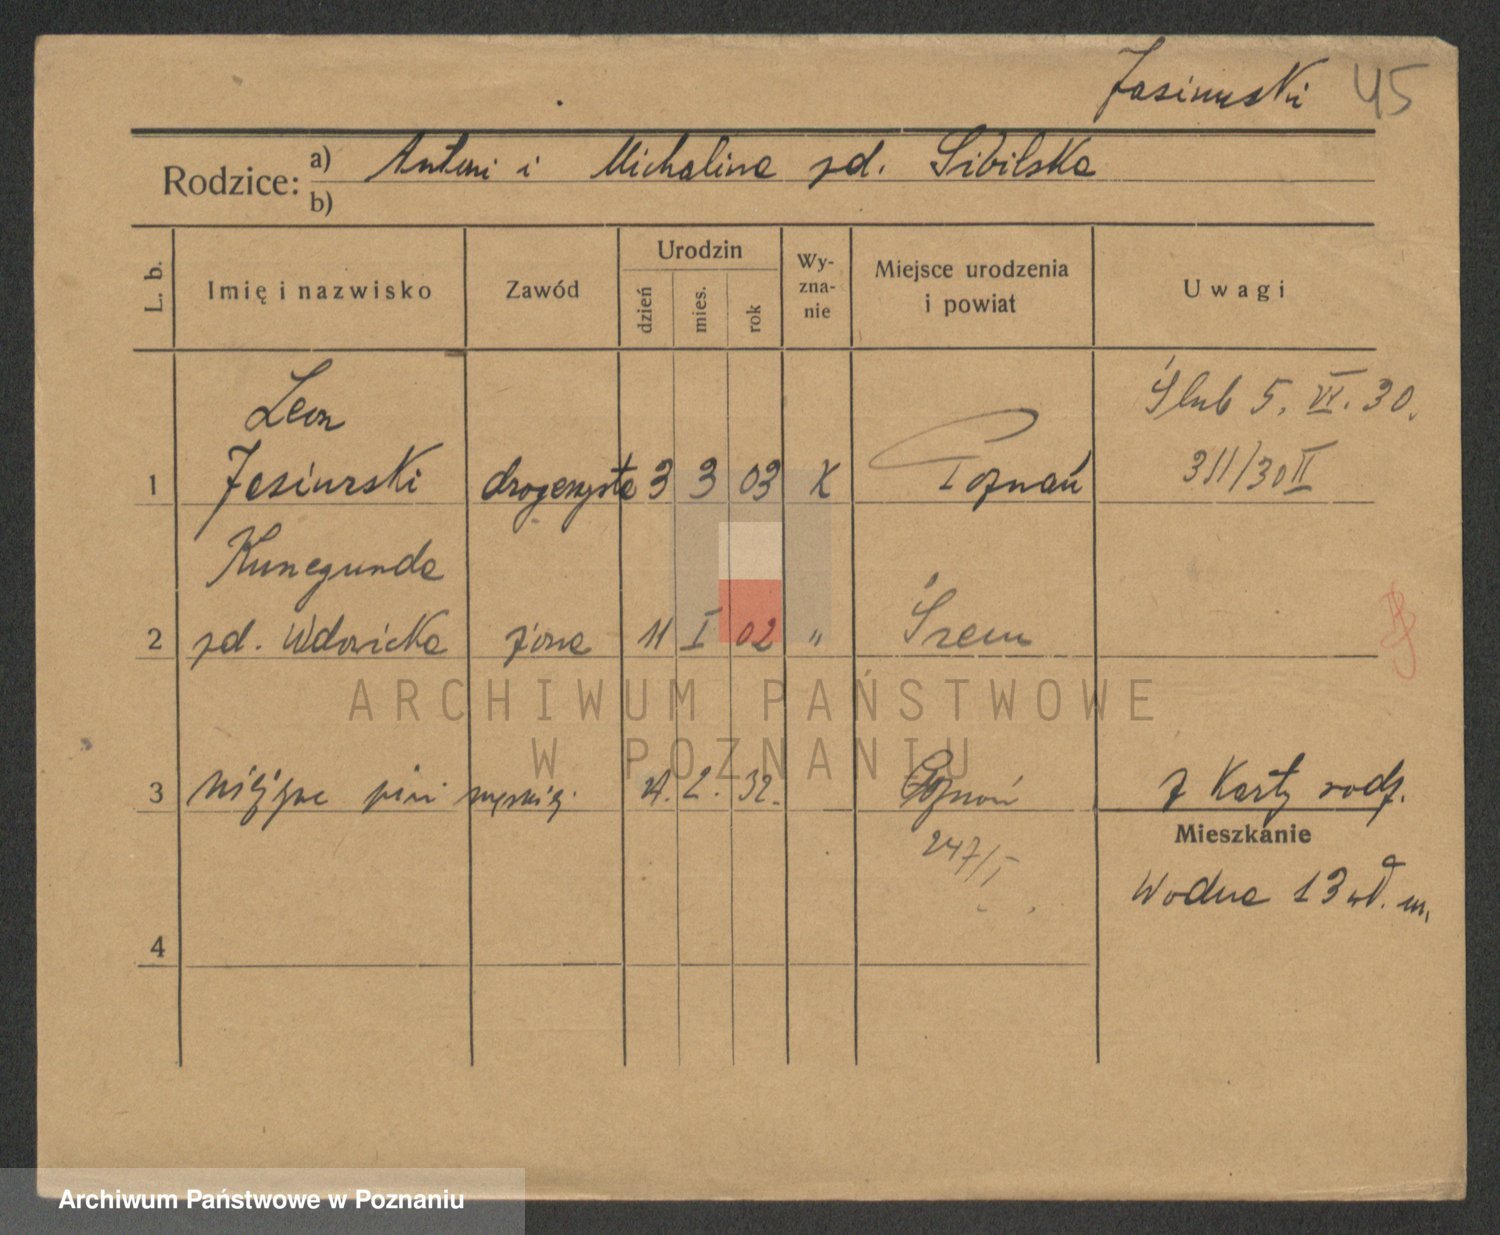 Jasiński 45
Rodzice: a) Antoni i Michalina zd. Sibilska
b)
L. b. Imię i nazwisko Zawód Urodzin dzień mies. rok Wy-zna-nie Miejsce urodzenia i powiat Uwagi
Leon Ślub 5. VI. 30.
1 drogerzysta 3 3 03 K Poznań 311/30 II
Kunegunda
2 zd. Wdowicka żona 11 I 02 " Śrem
ARCHIWUM PAŃSTWOWE
W POZNANIU
3 płci męskiej. 2. 32. Poznań z Karty rodz.
Mieszkanie
247/I
Wodna 13
4
Archiwum Państwowe w Poznaniu